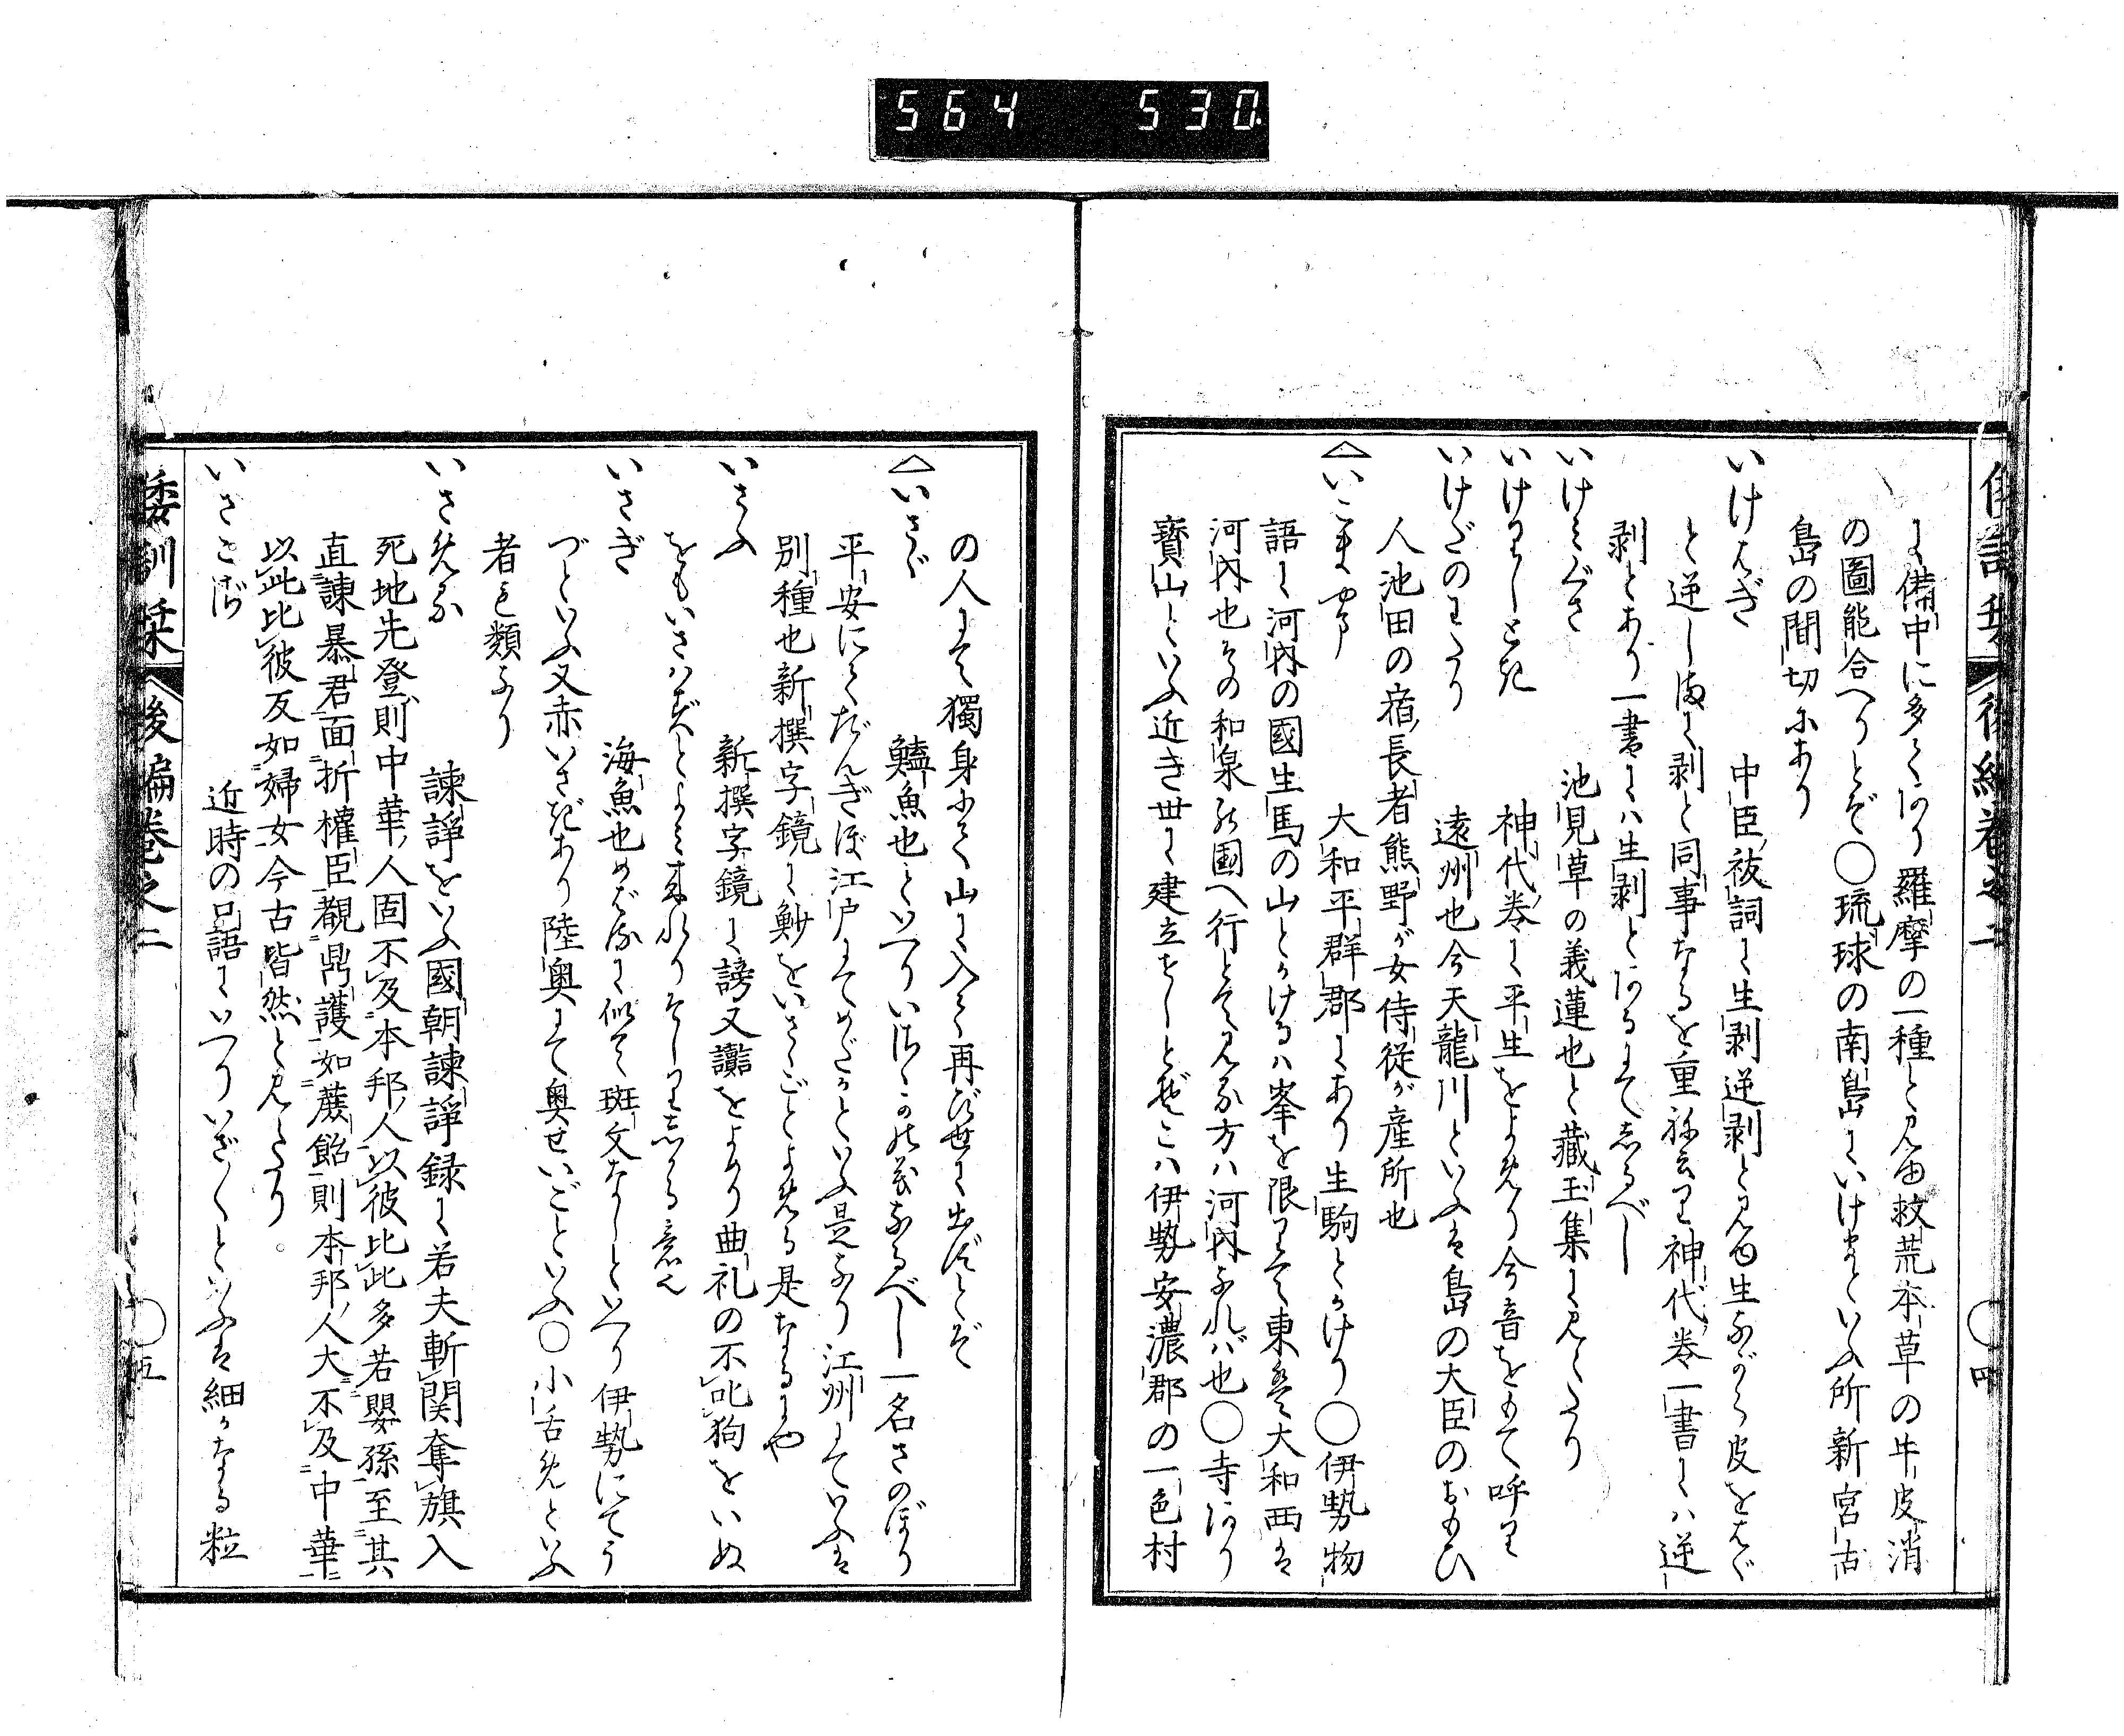 564 530
に備中に多くあり羅摩の一種と見ゆ救荒本草の牛皮消
の圖能合へりとぞ○琉球の南島にいけまといふ所新宮古
島の間切にあり
いけはぎ 中臣祓詞に生剥逆剥と見ゆ生ながら皮をはぐ
と逆しまに剥と同事なるを重ね云り神代巻一書には逆
剥とあり一書には生剥とあるにて志るべし
いけみぐさ 池見草の義蓮也と藏玉集に見えたり
いけりしとき 神代巻に平生をよめり今音をもて呼り
いけだのわたり 遠州也今天龍川といふは島の大臣のおもひ
人池田の宿長者熊野が女侍從が産所也
△いこまやま 大和平群郡にあり生駒とかけり○伊勢物
語に河内の國生馬の山とかけるは峯を限りて東は大和西は
河内也その和泉の國へ行とて見る方は河内なれば也○寺あり
寳山といふ近き世に建立せしとぞこは伊勢安濃郡の一色村
の人にて獨身にて山に入て再び世に出ずとぞ
△いさゞ 魚也といへり 一名さのぼり
平安にてだんぎぼ江戸にてめだかといふ是なり江州にていふは
別種也新撰字鏡に魦をいさゞごとよめる是なるにや
いさふ 新撰字鏡に謗又讟をよめり曲礼の不叱狗をいぬ
をもいさはずとよみ来れりそしり志かる意也
いさぎ 海魚也めばるに似て斑文なしといへり伊勢にてう
づといふ又赤いさぎあり陸奥にて奥せいごといふ○小舌めといふ
者も類なり
いさめる 諫諍をいふ國朝諫諍録に若夫斬関奪旗入
死地先登則中華人固不及本邦人以彼比此多若嬰孫至其
直諫暴君面折權臣覩鼎護如蔗飴則本邦人大不及中華
以此比彼反如婦女今古皆然と見えたり
いさご 近時の兄語にいへりいざ〱といふは細かなる粒
倭訓栞 後編巻之二 ○五